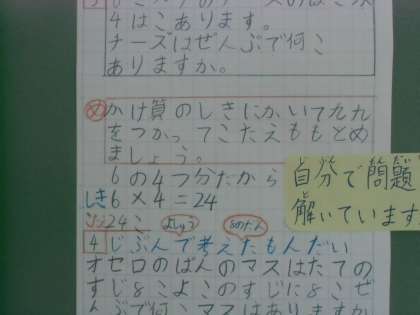 4はこあります。
チーズはぜんぶで何こ
ありますか。
め かけ算のしきにかいて九九
をつかってこたえももとめ
ましょう。
6の4つ分だから
しき 6×4=24
24こ
4 じぶんで考えたもんだい
オセロのばんのマスはたての
すじ8こよこのすじに8こぜ
んぶで何こマスはありますか
自分で問題
解いています